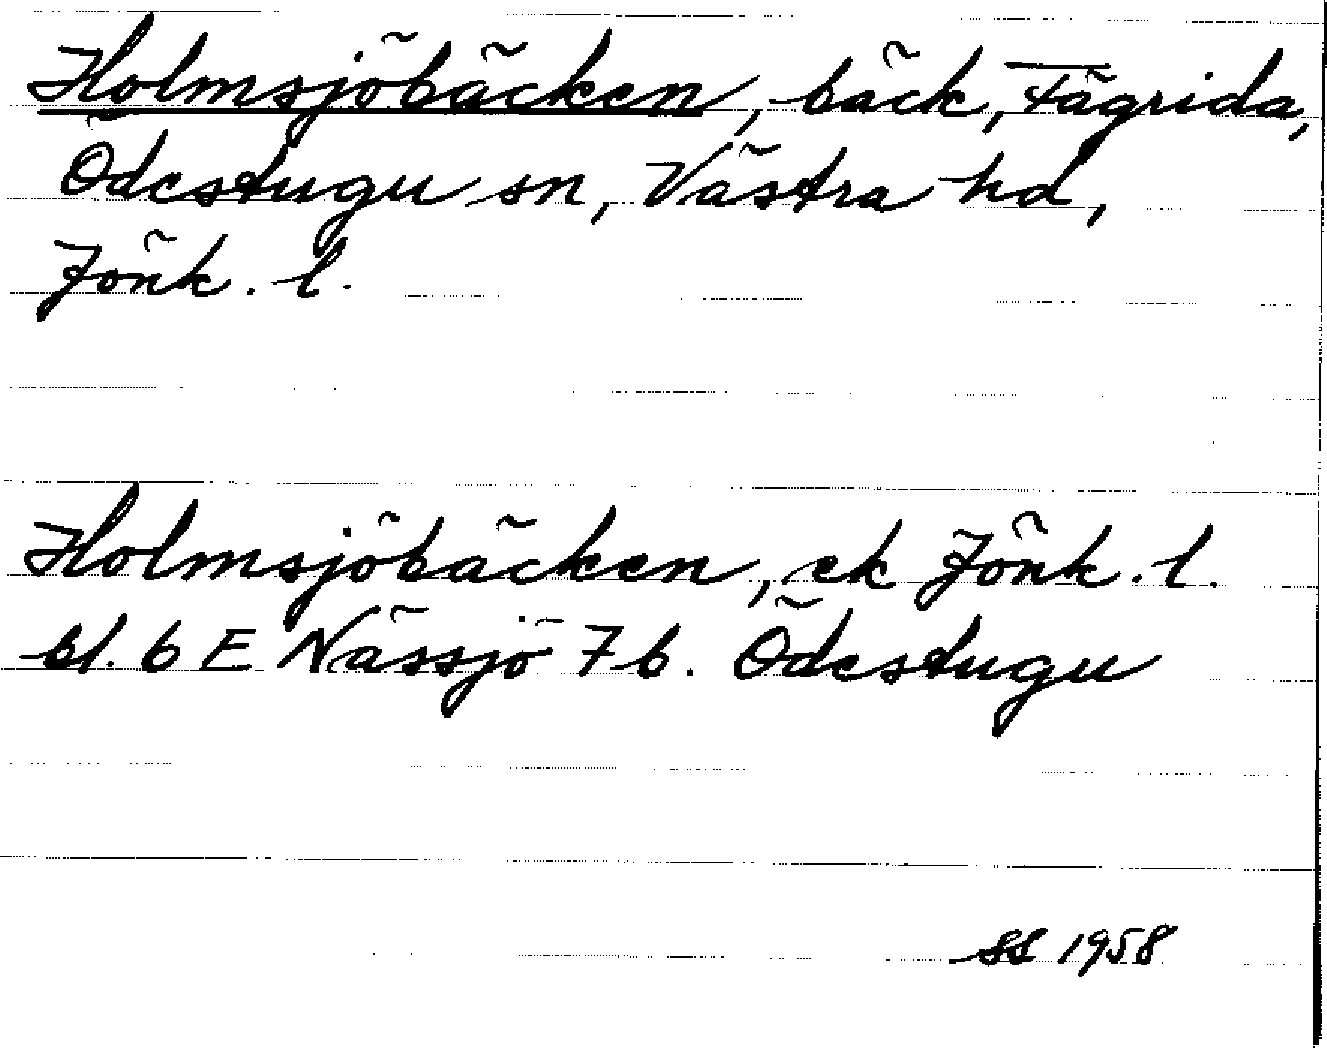 Holmsjöbäcken, bäck, Fägrida,
Ödestugu sn, Västra hd,
Jönk. l.
Holmsjöbäcken, ek Jönk. l.
bl. 6 E Nässjö 7b. Ödestugu
SS 1958